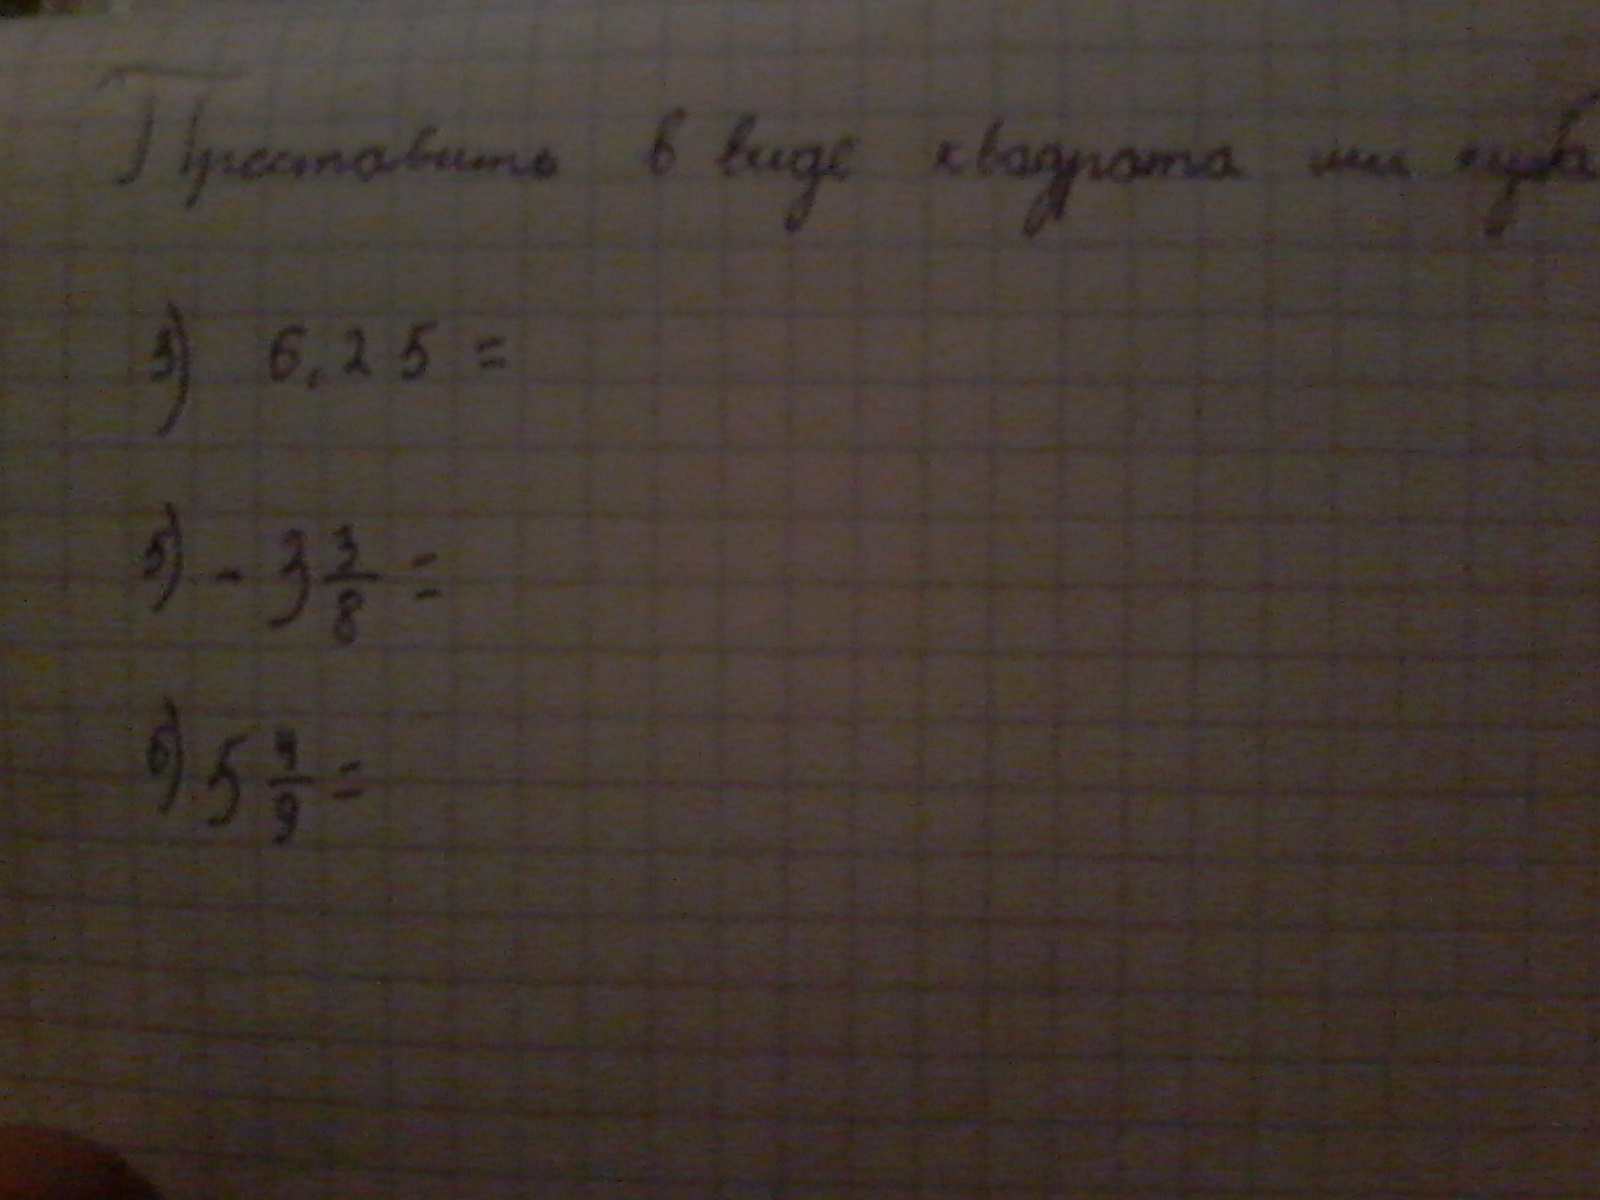 Преставить в виде квадрата или куба
3) 6,25 =
5) - 3 3/8 =
6) 5 4/9 =